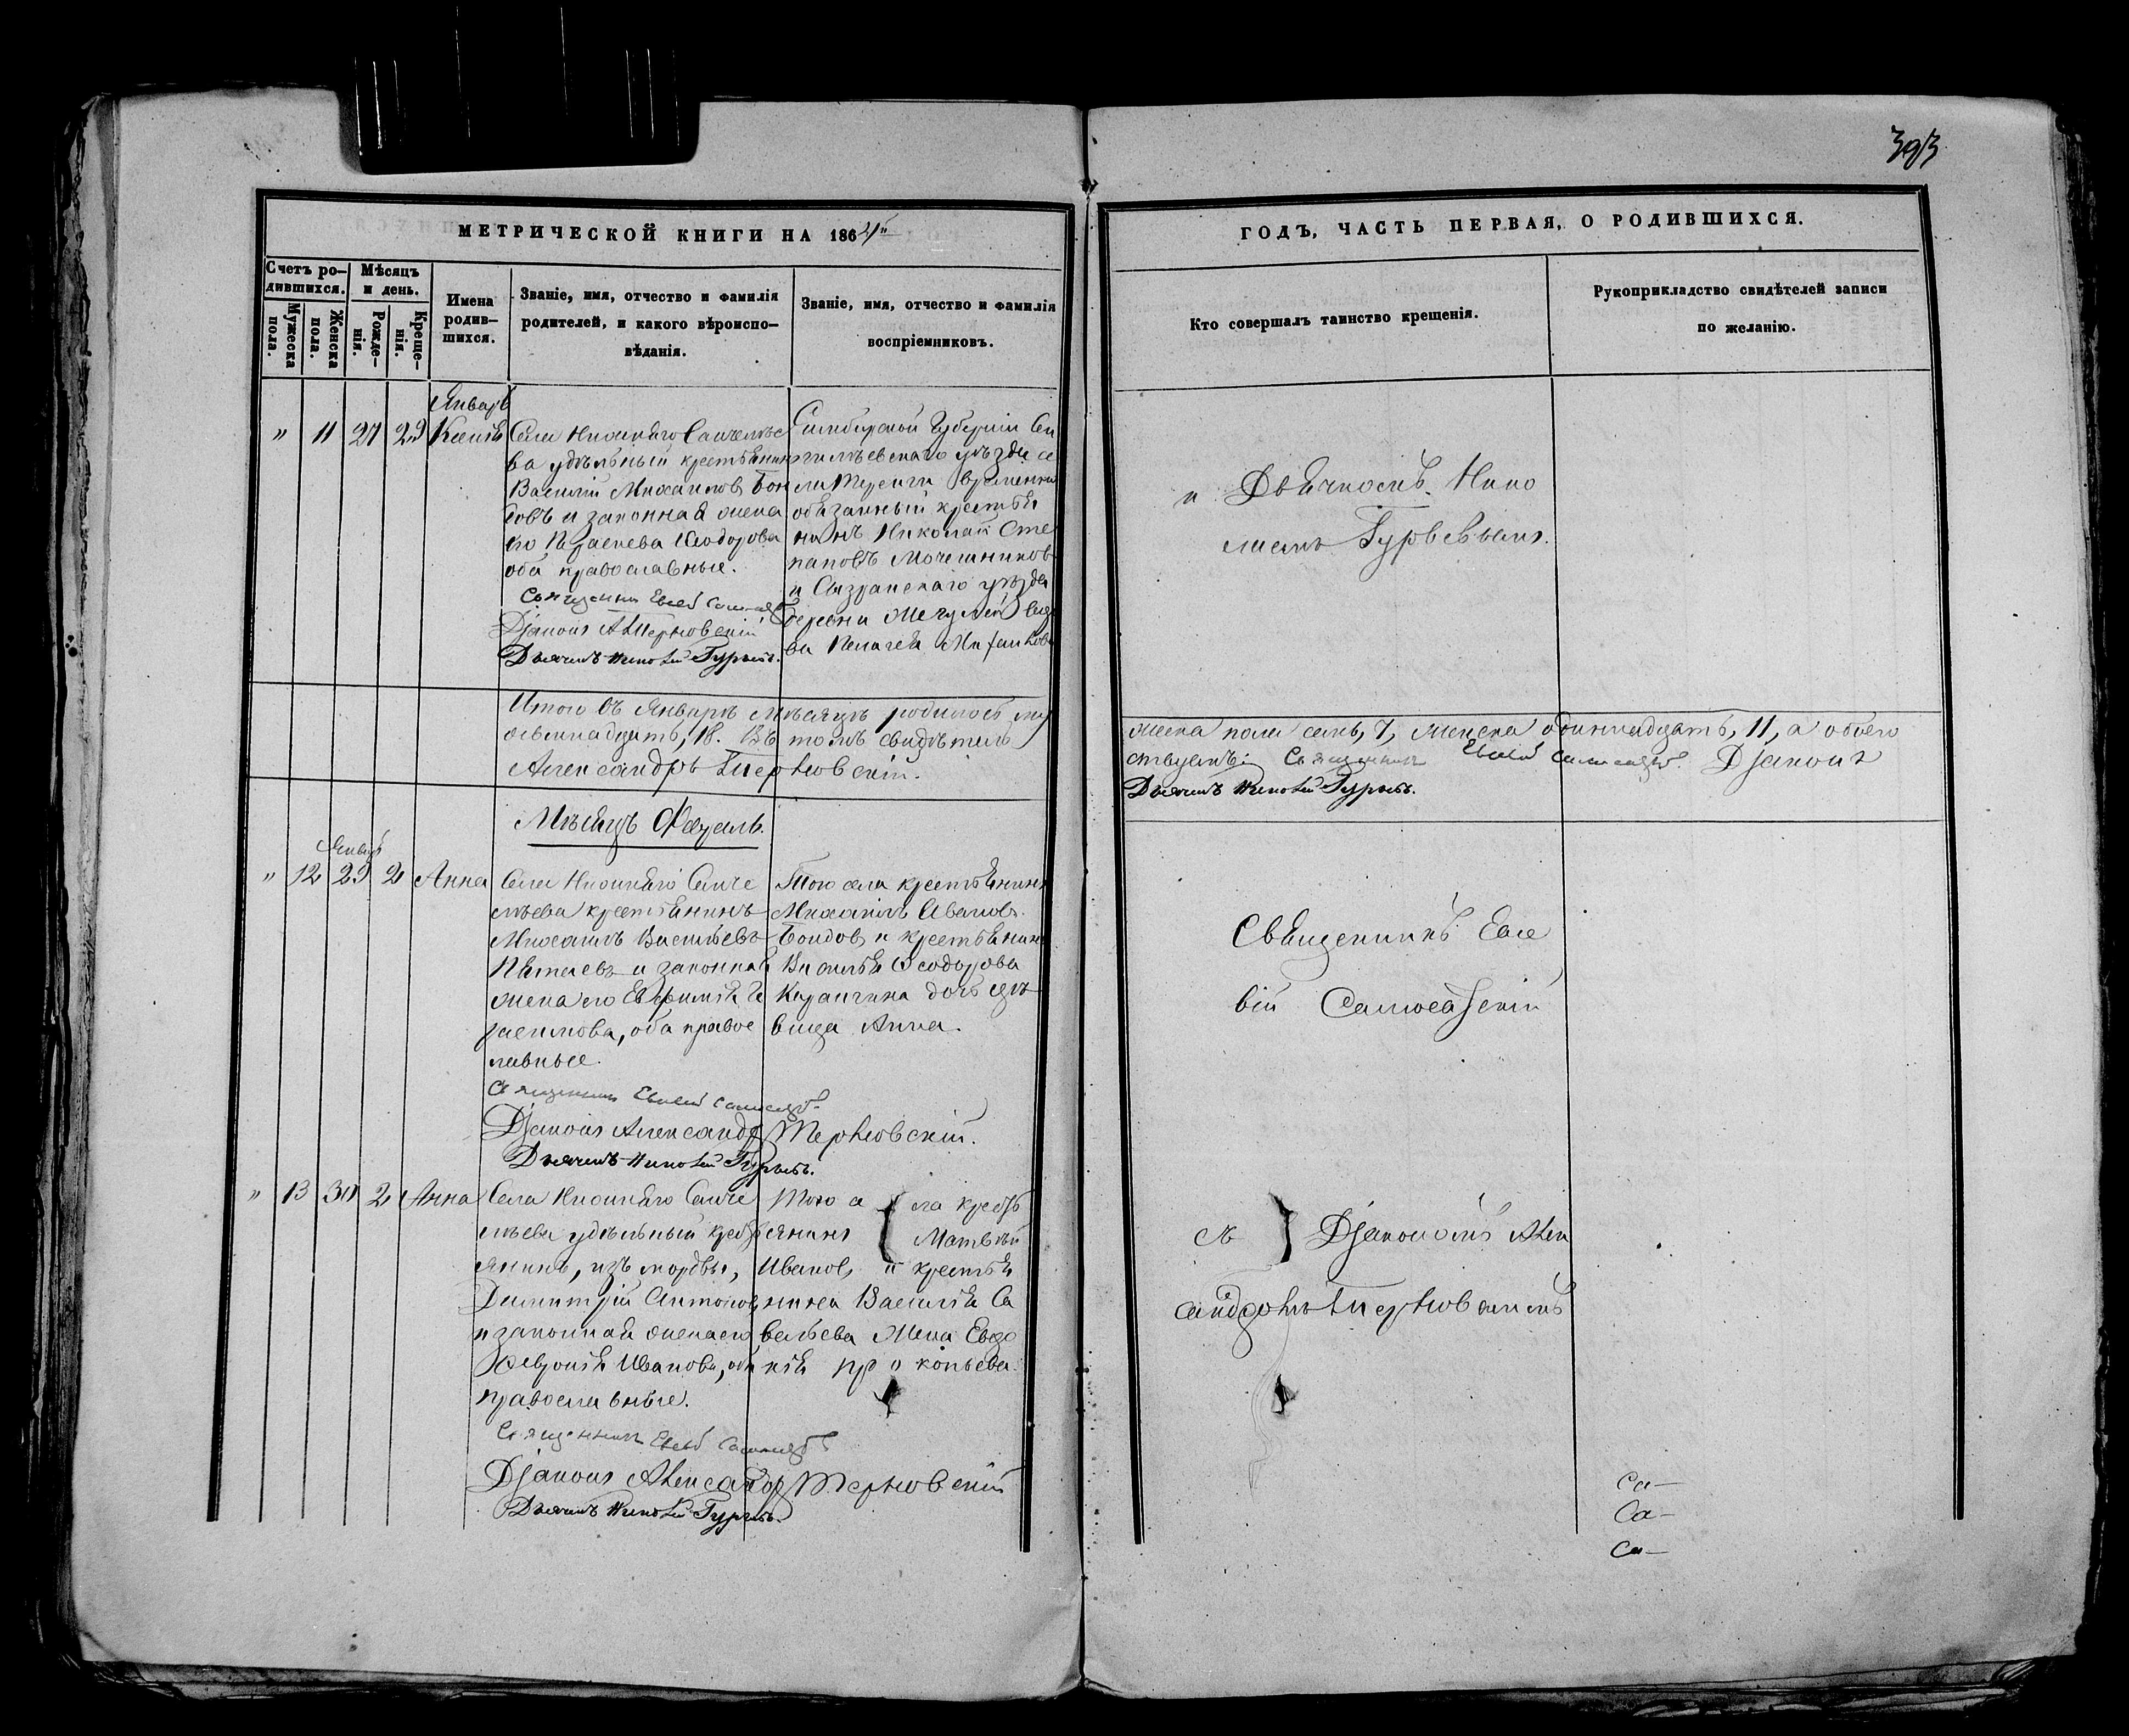 393
МЕТРИЧЕСКОЙ КНИГИ НА 1864й
ГОДЪ, ЧАСТЬ ПЕРВАЯ, О РОДИВШИХСЯ.
Счетъ ро-
дившихся.
Мужеска
пола.
Женска
пола.
Мѣсяцъ
и день.
Рожде-
нія.
Креще-
нія.
Имена
родив-
шихся.
Званіе, имя, отчество и фамилія
родителей, и какого вѣроиспо-
вѣданія.
Званіе, имя, отчество и фамилія
воспріемниковъ.
Кто совершалъ таинство крещенія.
Рукоприкладство свидѣтелей записи
по желанію.
Январь
" 11 27 29 Ксенія
Села Нижняго Санчелѣе
ва удѣльный крестьянинъ
Василій Михаиловъ Бон
довъ и законная жена
его Ѳеодорова
оба православные.
Священникъ Евсевій
Діаконъ А Терновскій
Дьячекъ Гурьевъ.
Симбирской Губерніи Сен
гилѣевскаго уѣзда се
ла Тереньги временно
обязанный крестья
нинъ Николай Сте
пановъ
и Сызранскаго уѣзда
деревни
ва Пелагея
и Дьячкомъ Нико
лаемъ Гурьевымъ.
Итого въ Январѣ мѣсяцѣ родилось му
жеска пола семь, 7, женска одиннадцать, 11, а обоего
осемнадцать, 18. Въ томъ свидѣтель
ствуемъ: Священникъ Евсевій Діаконъ
Александръ Терновскій.
Дьячекъ Гурьевъ.
Мѣсяцъ Февраль.
Январь
" 12 29 2 Анна
Села Нижняго Санче
лѣева крестьянинъ
Михаилъ Васильевъ
и законная
жена его Евфимія Ге
расимова, оба правос
лавные.
Священникъ Евсевій
Діаконъ Александр Терновскій.
Дьячекъ Гурьевъ.
Того села крестьянинъ
Михаилъ Ивановъ
Бондовъ и крестьянина
Василія Ѳеодорова
дочь дѣ
вица Анна.
Священникъ Евсе
вій
" 13 30 2 Анна
Села Нижняго Санче
лѣева удѣльный крест
янинъ, изъ мордвы,
Димитрій Антонов
и законная жена его
Ѳевронія Иванова, оба
православные.
Священникъ Евсевій
Діаконъ Александр Терновскій
Дьячекъ Гурьевъ.
Того села крест
янинъ Матвѣй
Ивановъ и крестья
нина Василія Са
вельева жена Евдо
кія Прокопьева.
съ Діакономъ Алек
сандромъ Терновскимъ
Са-
Са-
Са-